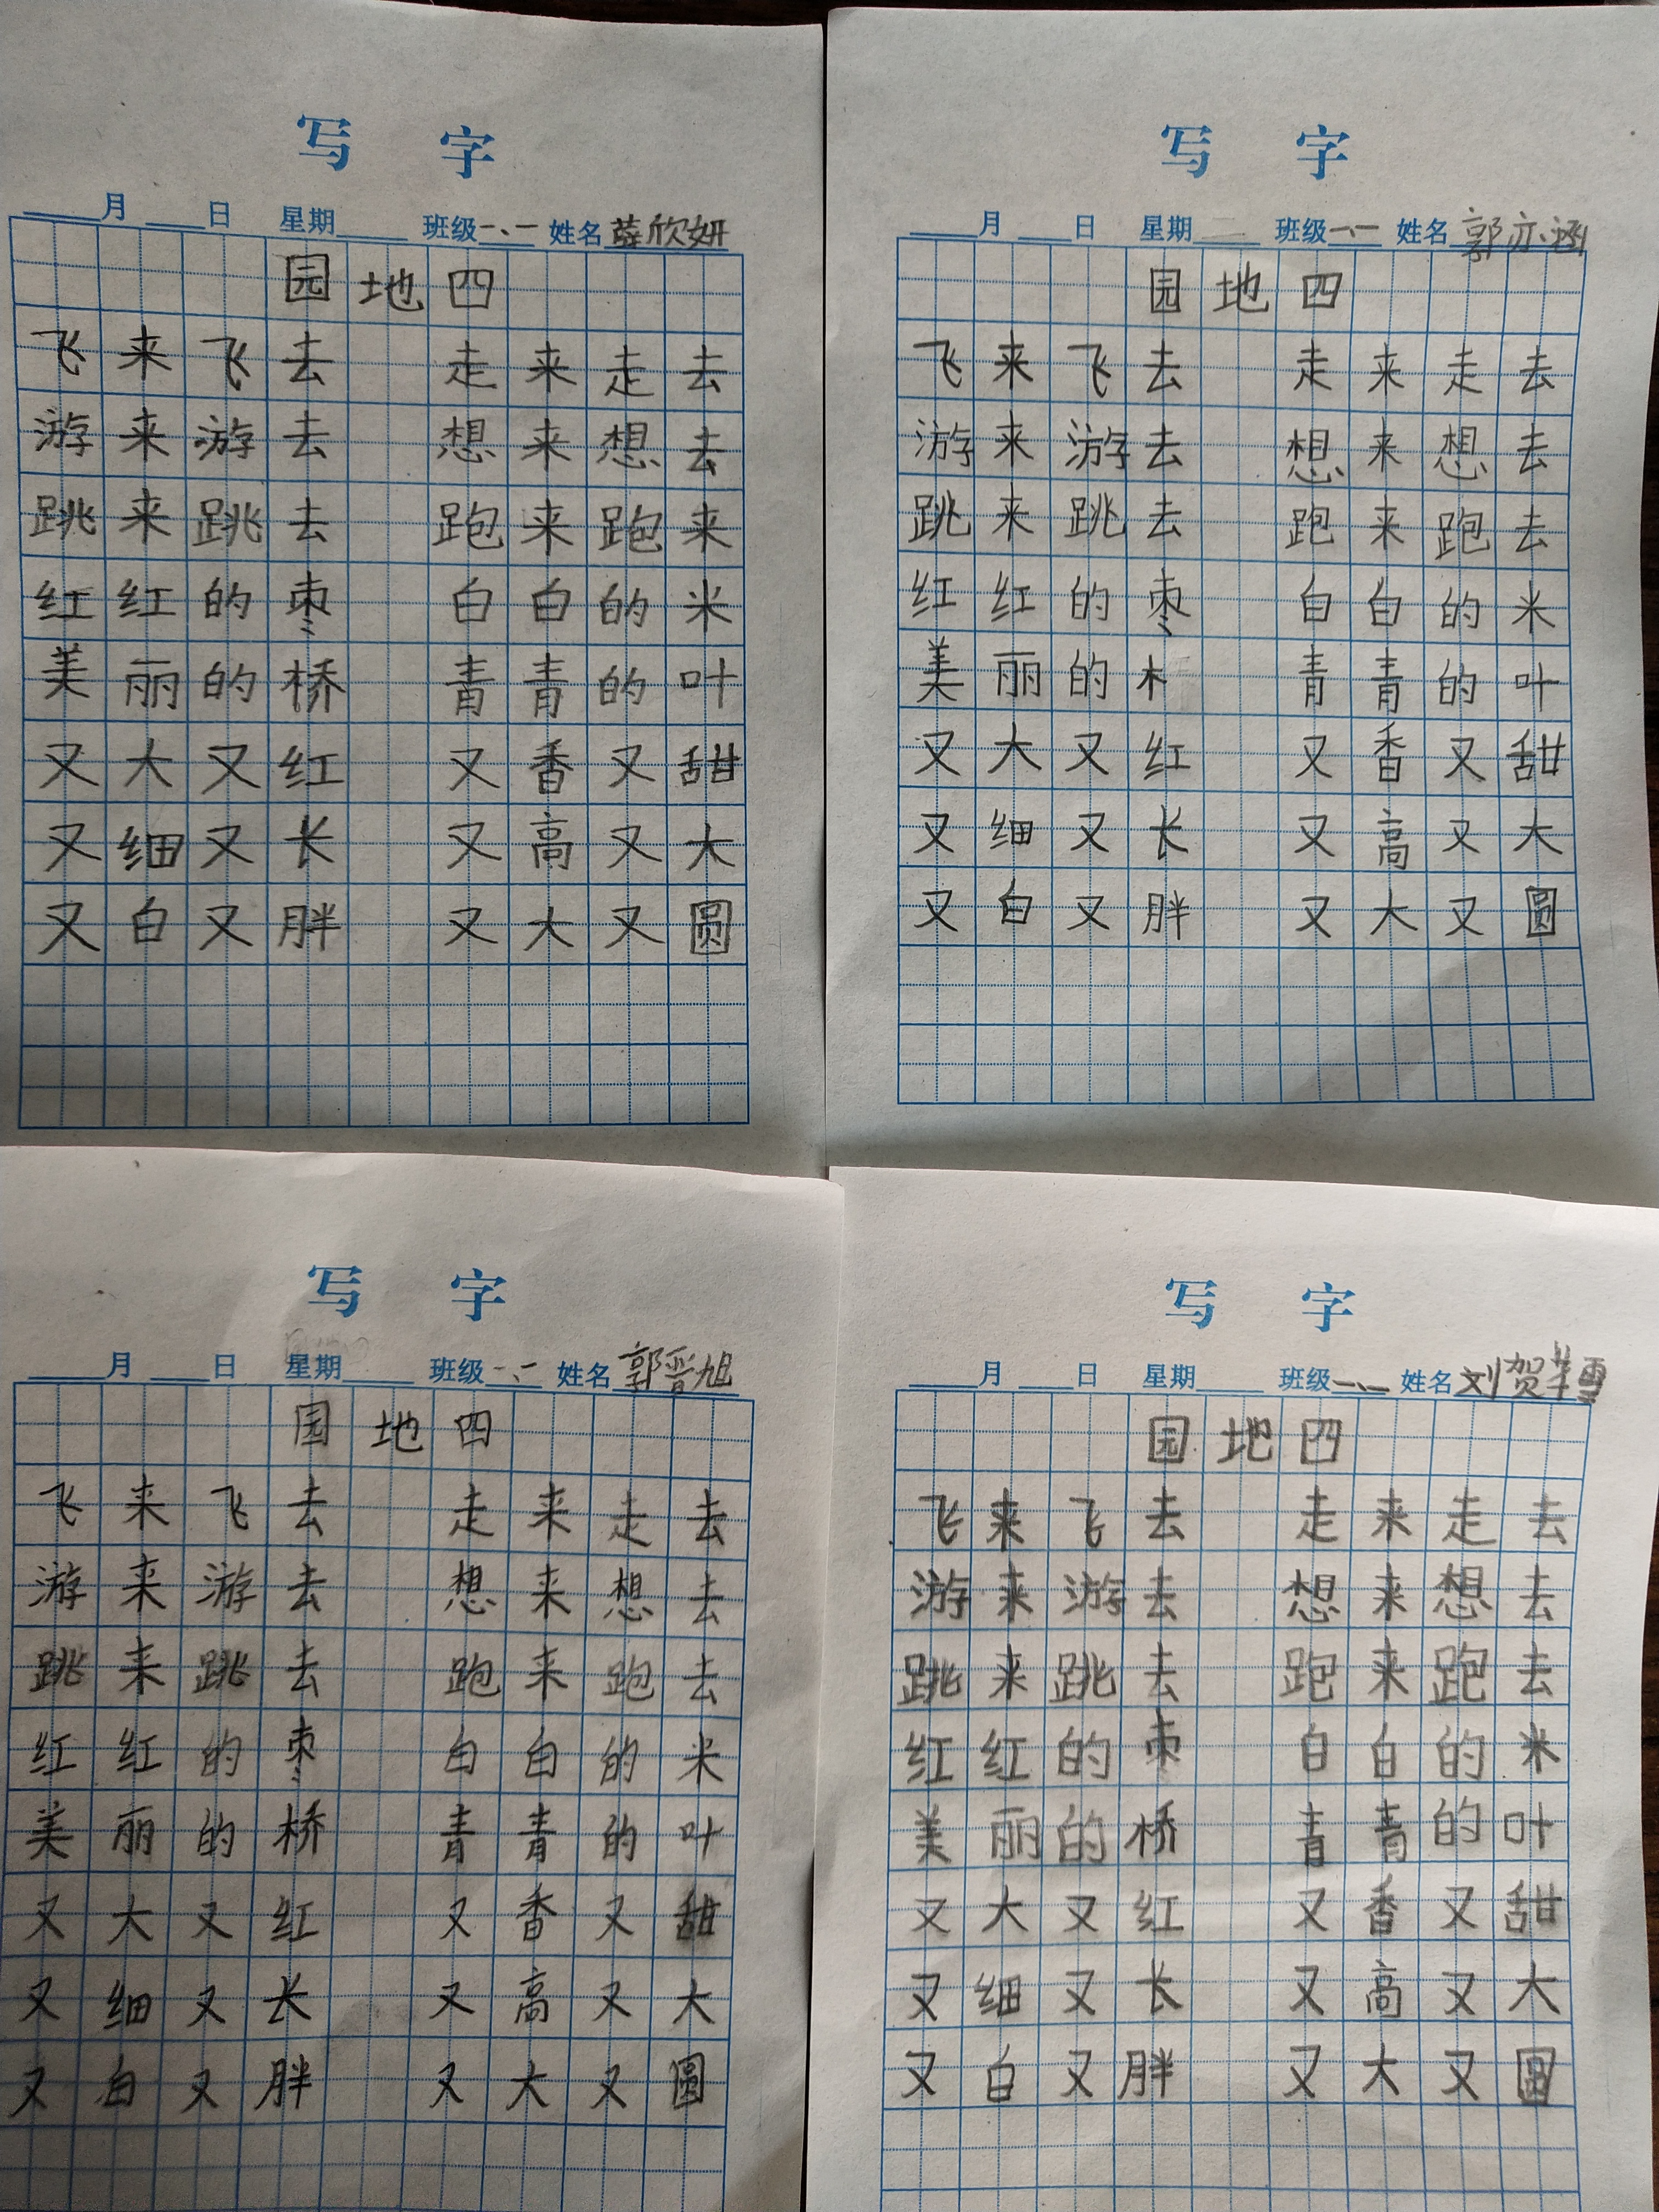 写 字
月 日 星期 班级一、一 姓名薛欣妍
园地四
飞来飞去 走来走去
游来游去 想来想去
跳来跳去 跑来跑来
红红的枣 白白的米
美丽的桥 青青的叶
又大又红 又香又甜
又细又长 又高又大
又白又胖 又大又圆
写 字
月 日 星期二 班级一、一 姓名郭亦涵
园地四
飞来飞去 走来走去
游来游去 想来想去
跳来跳去 跑来跑去
红红的枣 白白的米
美丽的木 青青的叶
又大又红 又香又甜
又细又长 又高又大
又白又胖 又大又圆
写 字
月 日 星期 班级一、一 姓名郭晋旭
园地四
飞来飞去 走来走去
游来游去 想来想去
跳来跳去 跑来跑去
红红的枣 白白的米
美丽的桥 青青的叶
又大又红 又香又甜
又细又长 又高又大
又白又胖 又大又圆
写 字
月 日 星期 班级一、一 姓名刘贺
园地四
飞来飞去 走来走去
游来游去 想来想去
跳来跳去 跑来跑去
红红的枣 白白的米
美丽的桥 青青的叶
又大又红 又香又甜
又细又长 又高又大
又白又胖 又大又圆